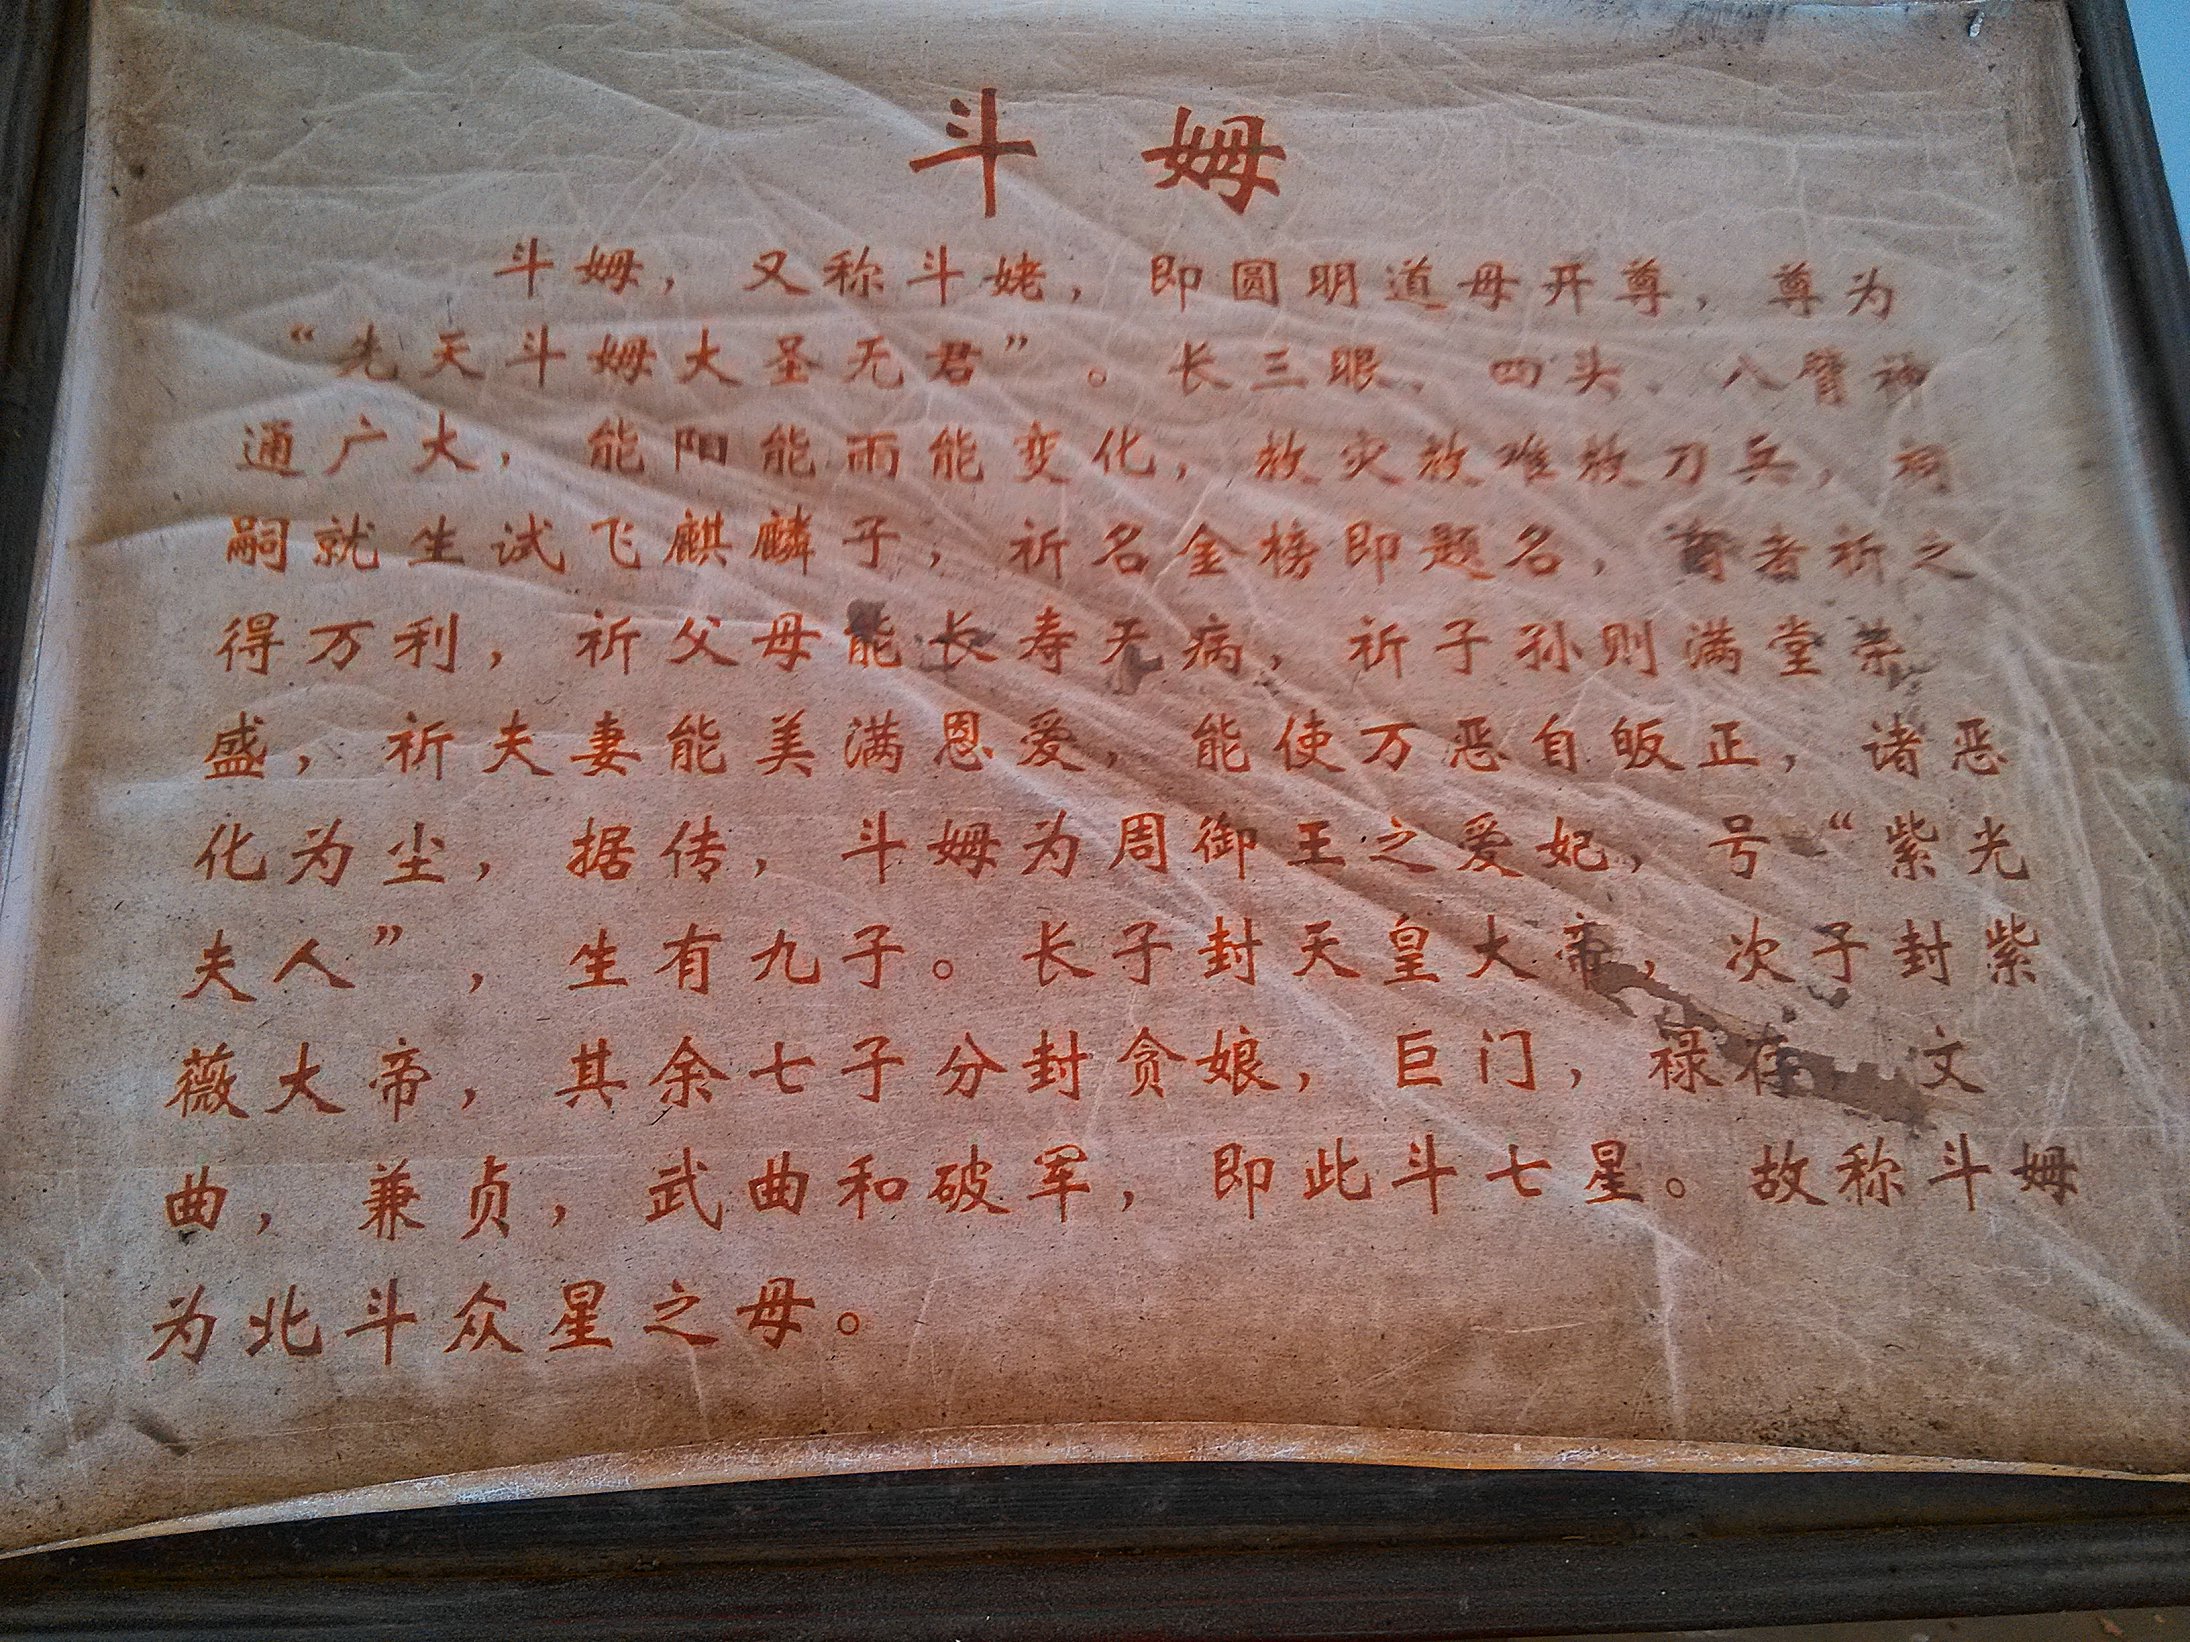 斗姆
斗姆，又称斗姥，即圆明道母开尊，尊为
“先天斗姆大圣无君”。长三眼，四头，八臂神
通广大，能阳能雨能变化，救灾救难救刀兵，祠
嗣就生试飞麒麟子，祈名金榜即题名，者祈之
得万利，祈父母能长寿无病，祈子孙则满堂荣
盛，祈夫妻能美满恩爱，能使万恶自皈正，诸恶
化为尘，据传，斗姆为周御王之爱妃，号“紫光
夫人”，生有九子。长子封天皇大帝，次子封紫
薇大帝，其余七子分封贪娘，巨门，禄存 文
曲，兼贞，武曲和破军，即此斗七星。故称斗姆
为北斗众星之母。